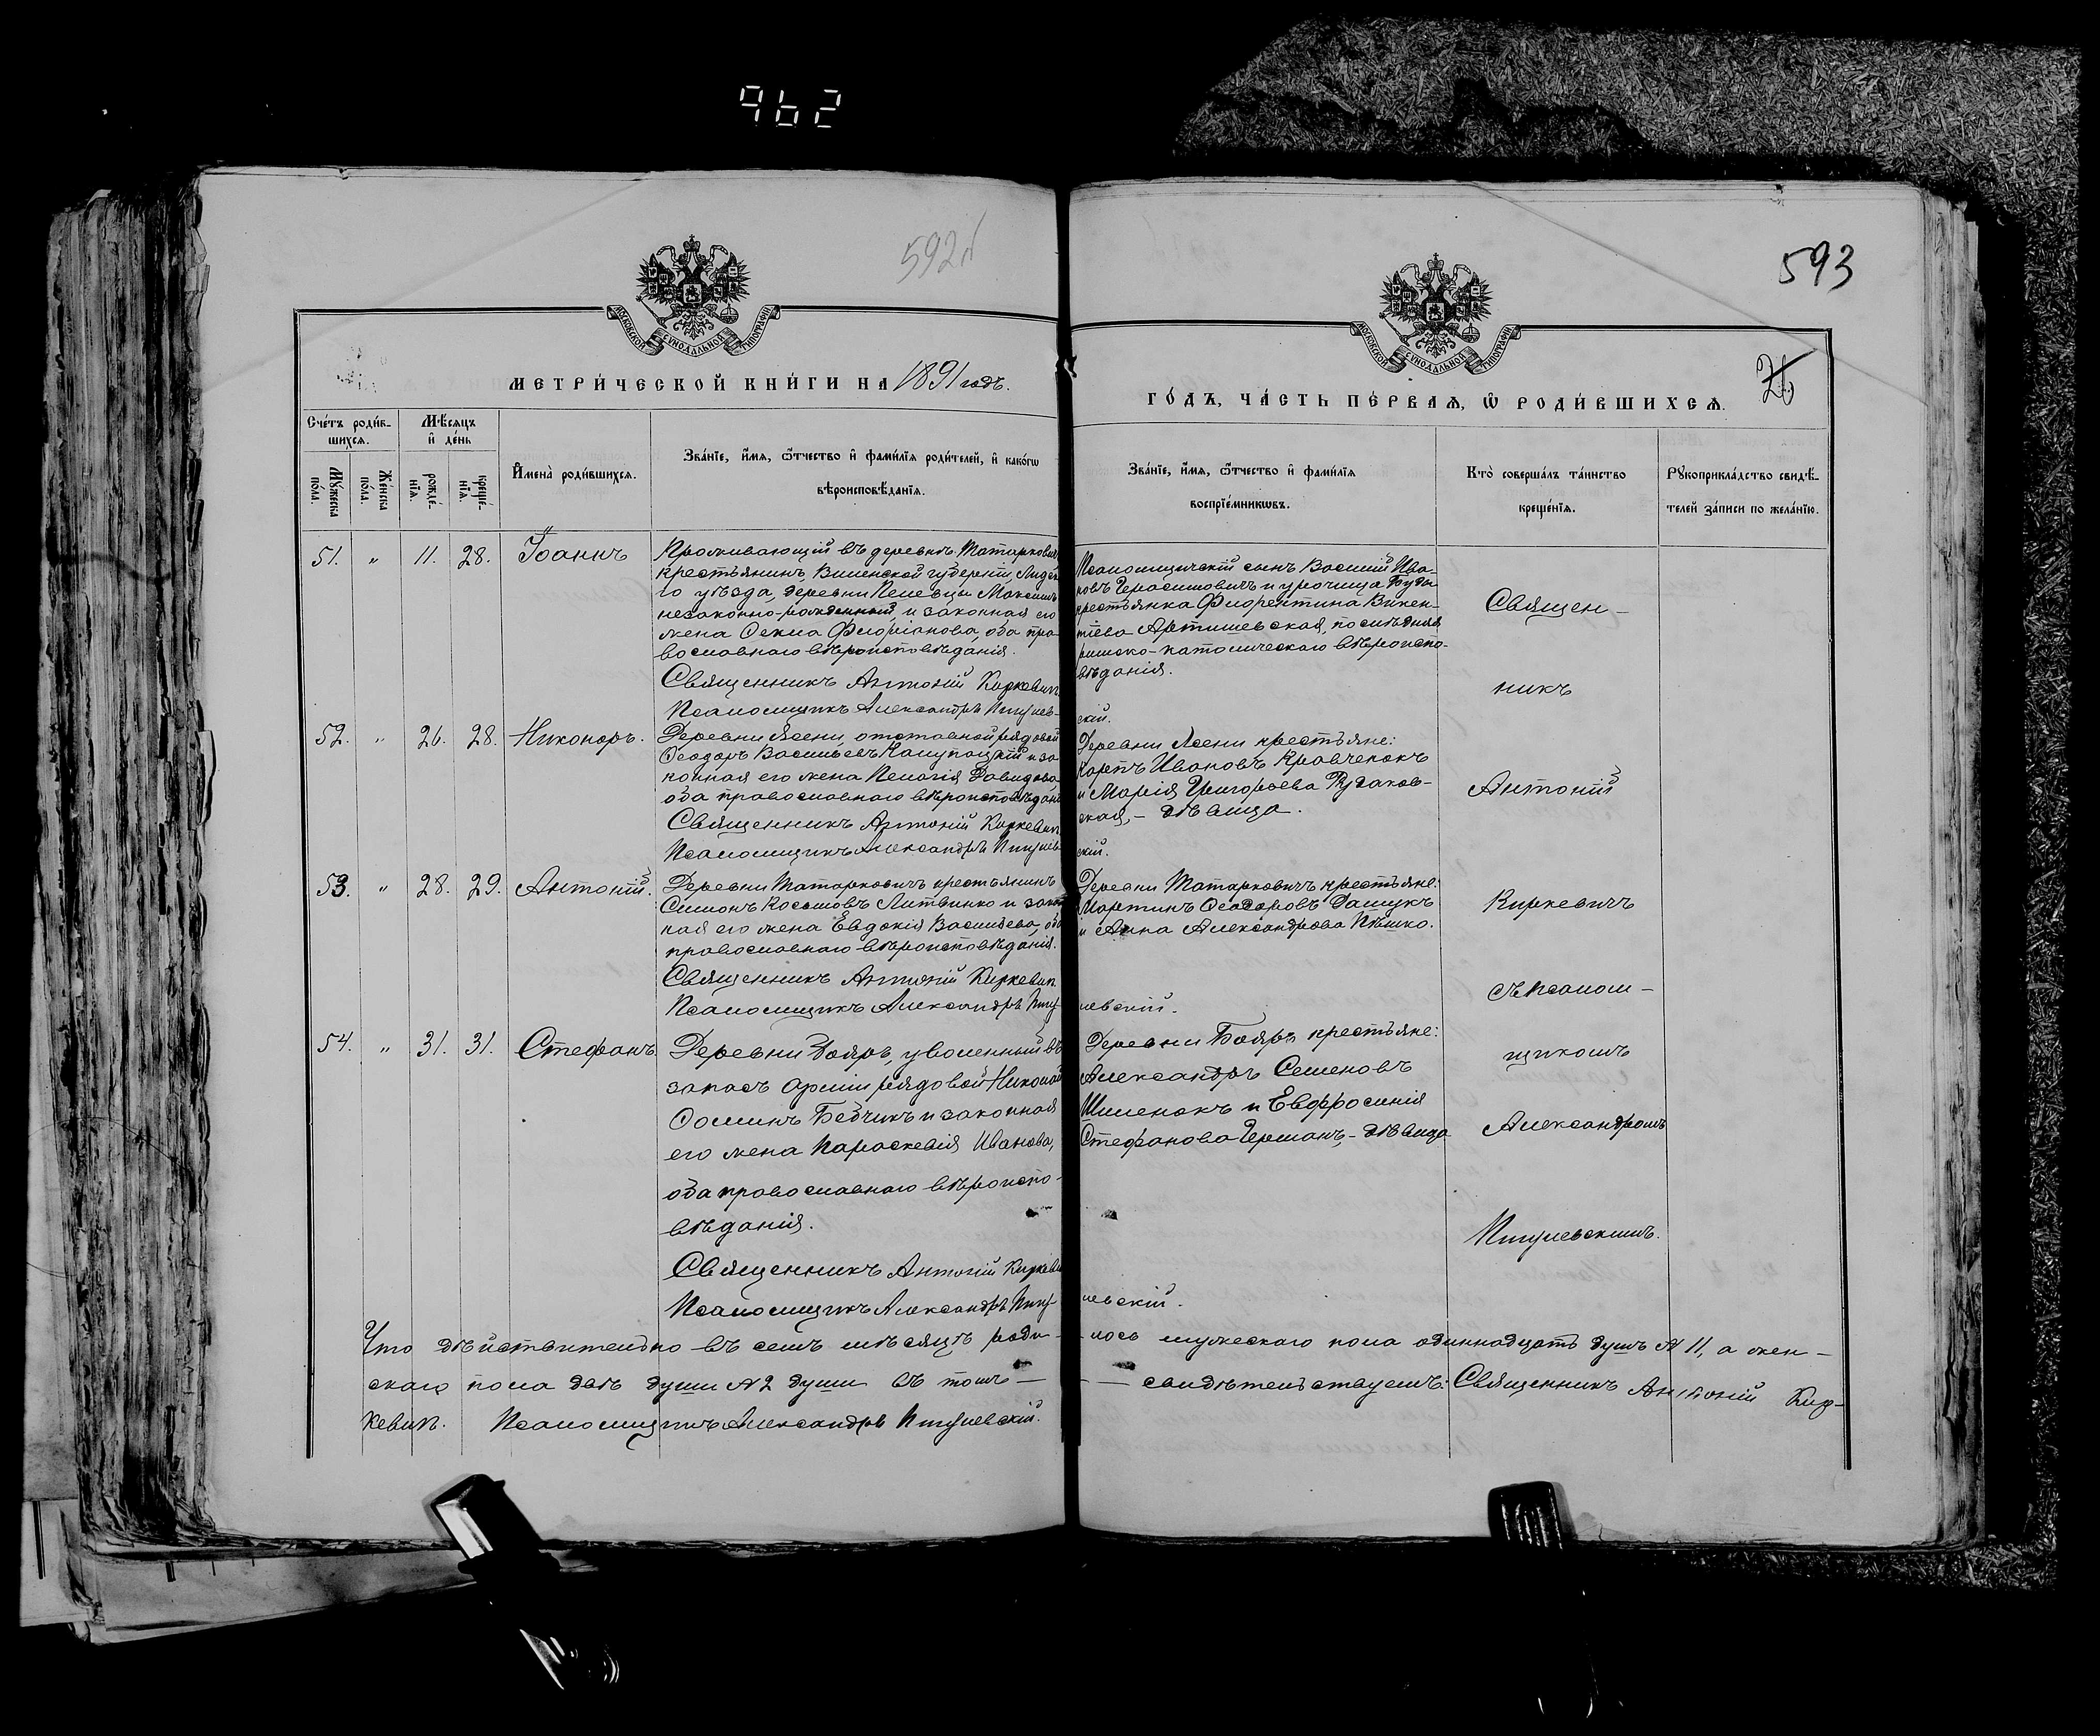 962
592
593
МОСКОВСКОЙ СѴНОДАЛЬНОЙ ТИПОГРАФІИ
МОСКОВСКОЙ СѴНОДАЛЬНОЙ ТИПОГРАФІИ
26
МЕТРИ́ЧЕСКОЙ КНИ́ГИ НА 1891 годъ.
ГО́ДЪ, ЧА́СТЬ ПЕ́РВАѦ, Ѡ҆ РОДИ́ВШИХСѦ.
Сче́тъ роди́в-
шихсѧ.
Мꙋ́жеска по́ла.
Же́нска по́ла.
Мѣ́сѧцъ
и҆ де́нь
рожде́-нїѧ.
креще́-нїѧ.
И҆мена̀ роди́вшихсѧ.
Зва́нїе, и҆́мѧ, ѻ҆́тчество и҆ фами́лїѧ роди́телей, и҆ како́гѡ
вѣроисповѣ́данїѧ.
Зва́нїе, и҆́мѧ, ѻ҆́тчество и҆ фами́лїѧ
воспрїе́мникѡвъ.
Кто̀ соверша́лъ та́инство
креще́нїѧ.
Рꙋкоприкла́дство свидѣ́-
телей за́писи по жела́нїю.
51. " 11. 28. Іоаннъ
Проживающій въ деревнѣ Татаркович
крестьянинъ, Виленской губерніи, Лидск
го уѣзда, деревни Пелевцы Максимъ
незаконно-рожденный и законная его
жена Текла Флоріанова, оба пра-
вославнаго вѣроисповѣданія.
Священникъ Антоній Киркевич
Псаломщикъ Александръ
скій.
Псаломщическій сынъ Василій Ива-
новъ Герасимовичъ и урочища Буды
крестьянка Флорентина Викен-
тіева послѣдняя
римско-католическаго вѣроиспо-
вѣданія.
52. " 26. 28. Никоноръ.
Деревни Ясени отставной рядовой
Ѳеодоръ Васильевъ и за-
конная его жена Пелагія Давидова,
оба православнаго вѣроисповѣдан
Священникъ Антоній Киркевич
Псаломщикъ Александръ
скій.
Деревни Ясени крестьяне:
Карпъ Ивановъ Кравченокъ
и Марія Григорьева Рудаков-
ская, - дѣвица.
53. " 28. 29. Антоній.
Деревни Татарковичъ крестьянинъ
Симонъ Косьмовъ Литвинко и закон
ная его жена Евдокія Васильева, оба
православнаго вѣроисповѣданія.
Священникъ Антоній Киркевич
Псаломщикъ Александръ
левскій.
Деревни Татарковичъ крестьяне:
Мартинъ Ѳеодоровъ Дашукъ
и Анна Александрова Пѣшко.
54. " 31. 31. Стефанъ.
Деревни Бояръ, уволенный въ
запасъ арміи рядовой Николай
Ѳоминъ Бобчикъ и законная
его жена Параскевія Иванова,
оба православнаго вѣроиспо-
вѣданія.
Священникъ Антоній Киркевич
Псаломщикъ Александръ
левскій.
Деревни Бояръ крестьяне:
Александръ Семеновъ
Шиленокъ и Евфросинія
Стефанова Германъ, - дѣвица
Священ-
никъ
Антоній
Киркевичъ
съ псалом-
щикомъ
Александромъ
Что дѣйствительно въ семъ мѣсяцѣ роди- лось мужескаго пола одиннадцать душъ № 11, а жен-
скаго пола двѣ души № 2 души въ томъ — — свидѣтельствуемъ: Священникъ Антоній Кир-
кевич. Псаломщикъ Александръ